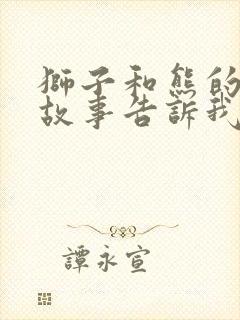 獅子和熊的
故事告訴我
譚永宣